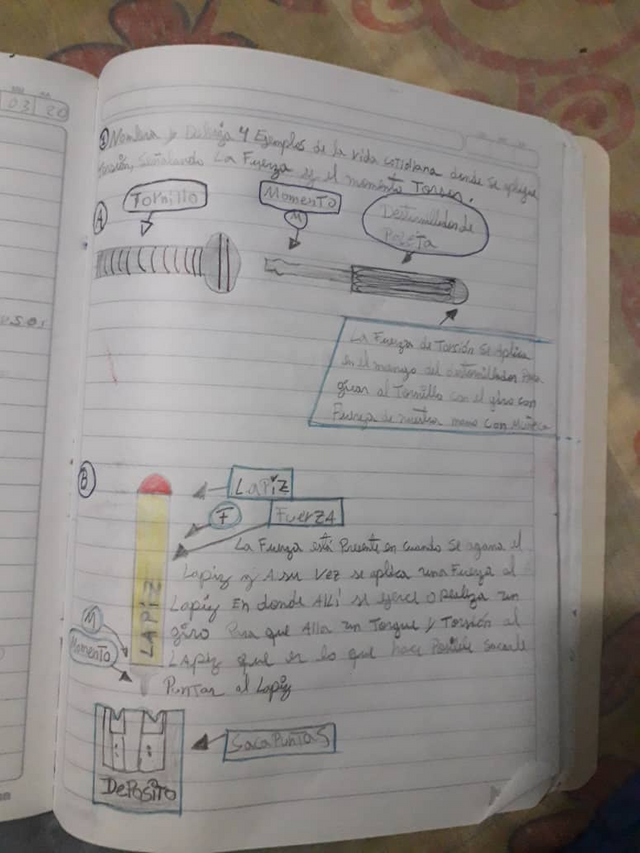 03 20
Nombra y Dibuja 4 Ejemplos de la vida cotidiana donde se aplique
Torsión, Señalando La Fuerza y el momento Torsor.
A
Tornillo
Momento
M
Destornillador de
Paleta
La Fuerza de Torsión se aplica
en el mango del destornillador Para
girar al Tornillo con el giro con
Fuerza de nuestra mano con Muñeca
B
LaPiz
F
Fuerza
La Fuerza está Presente en cuando Se agarra el
Lapiz y A su Vez se aplica una Fuerza al
Lapiz En donde ALLí se ejerce o Realiza un
giro Para que Alla un Torque y Torsión al
LAPiz que es lo que hace Posible Sacarle
Puntas al Lapiz
LAPIZ
M
Momento
SacaPuntas
DePosiTo